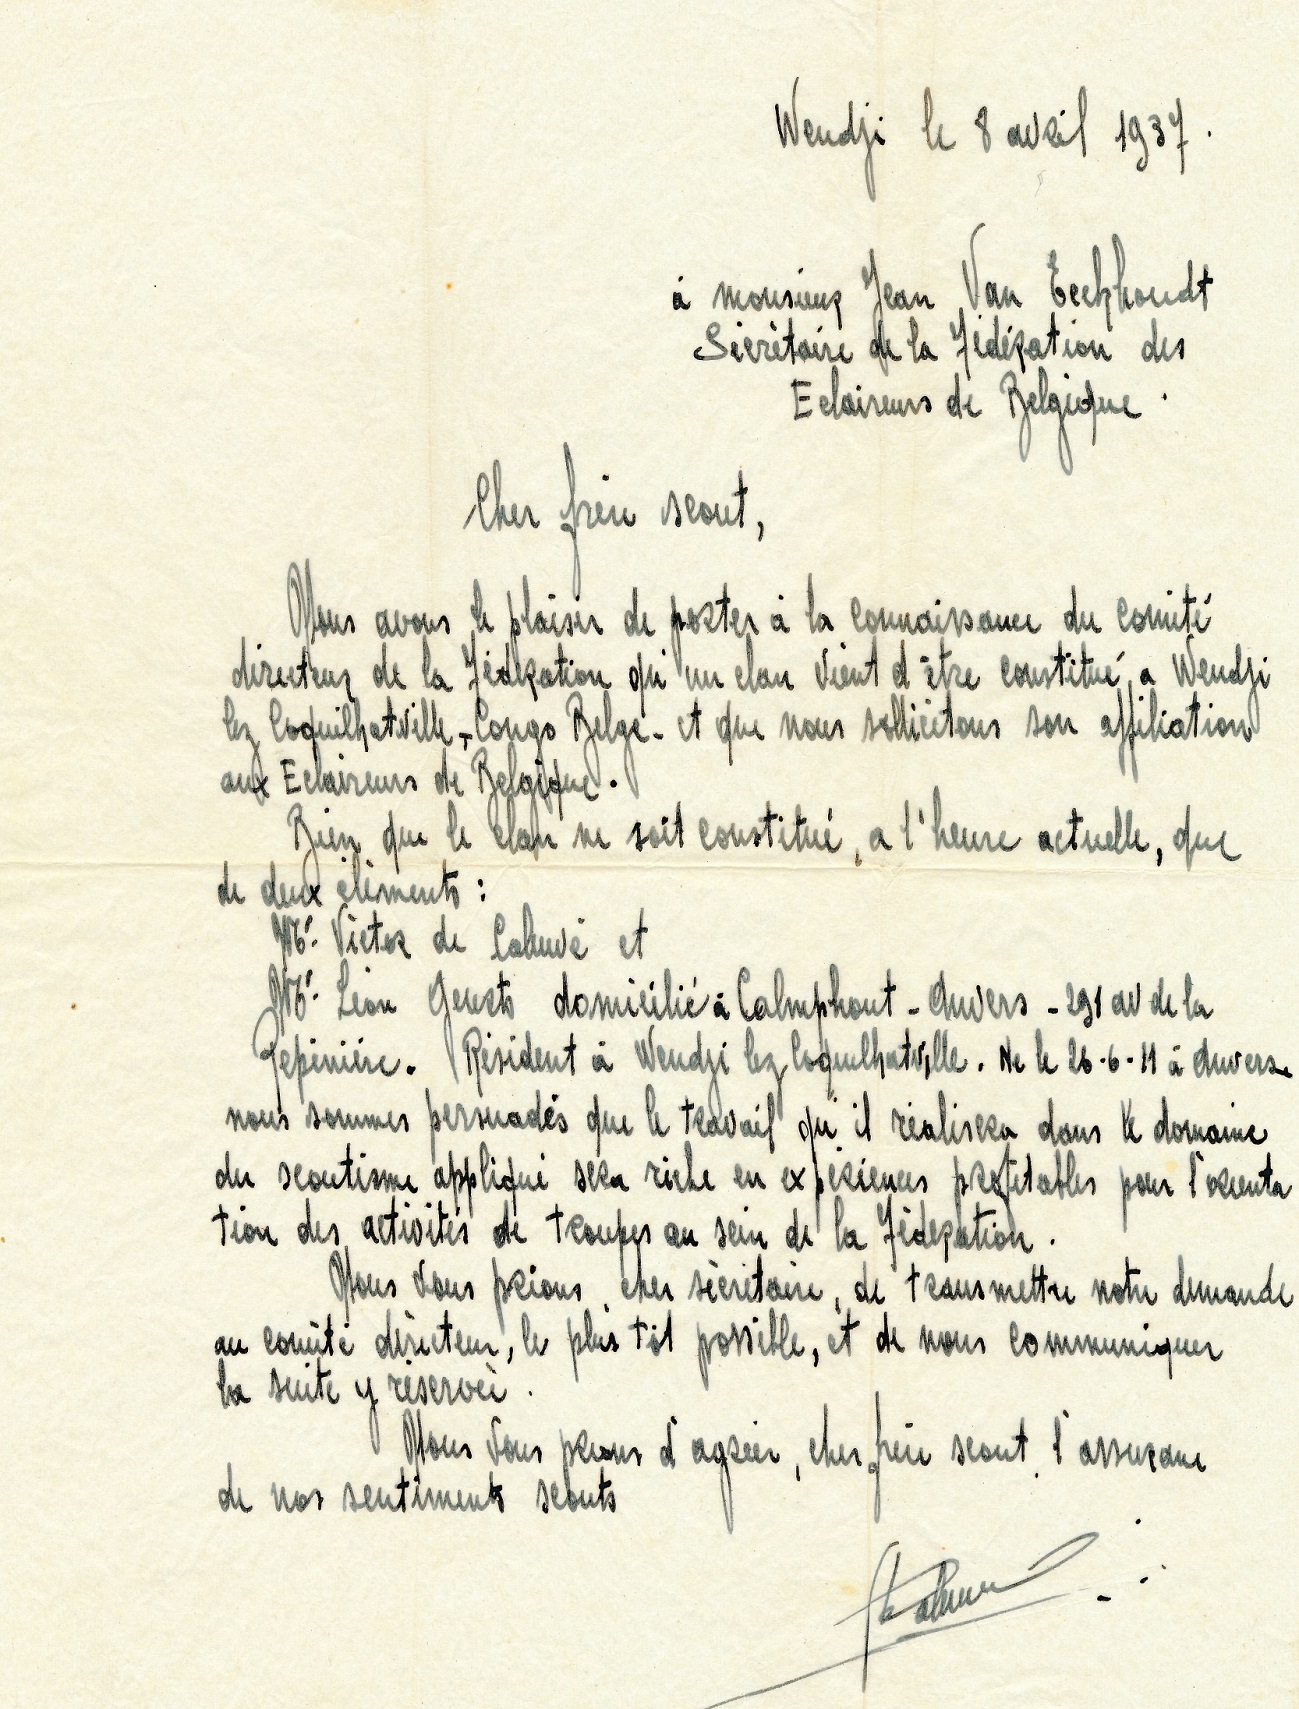 Wendji le 8 avril 1937.
à monsieur Jean Van Eeckhoudt
Secrétaire de la Fédération des
Eclaireurs de Belgique.
Cher frère scout,
Nous avons le plaisir de porter à la connaissance du comité
directeur de la Fédération qu'un clan vient d'être constitué a Wendji
lez Coquilhatville, - Congo Belge - et que nous sollicitons son affiliation
aux Eclaireurs de Belgique.
Bien que le clan ne soit constitué, a l'heure actuelle, que
de deux éléments :
Mr. Victor de Caluwé et
Mr. Léon domicilié à Calmphout - Anvers - 291 av de la
Pépinière. Résident à Wendji lez Coquilhatville. Né le 26-6-11 à Anvers
nous sommes persuadés que le travail qu'il réalisera dans le domaine
du scoutisme appliqué sera riche en expériences profitables pour l'orienta
tion des activités de troupes au sein de la Fédération.
Nous vous prions, cher secrétaire, de transmettre notre demande
au comité directeur, le plus tôt possible, et de nous communiquer
la suite y réservée.
Nous vous prions d'agréer, cher frère scout, l'assurance
de nos sentiments scouts